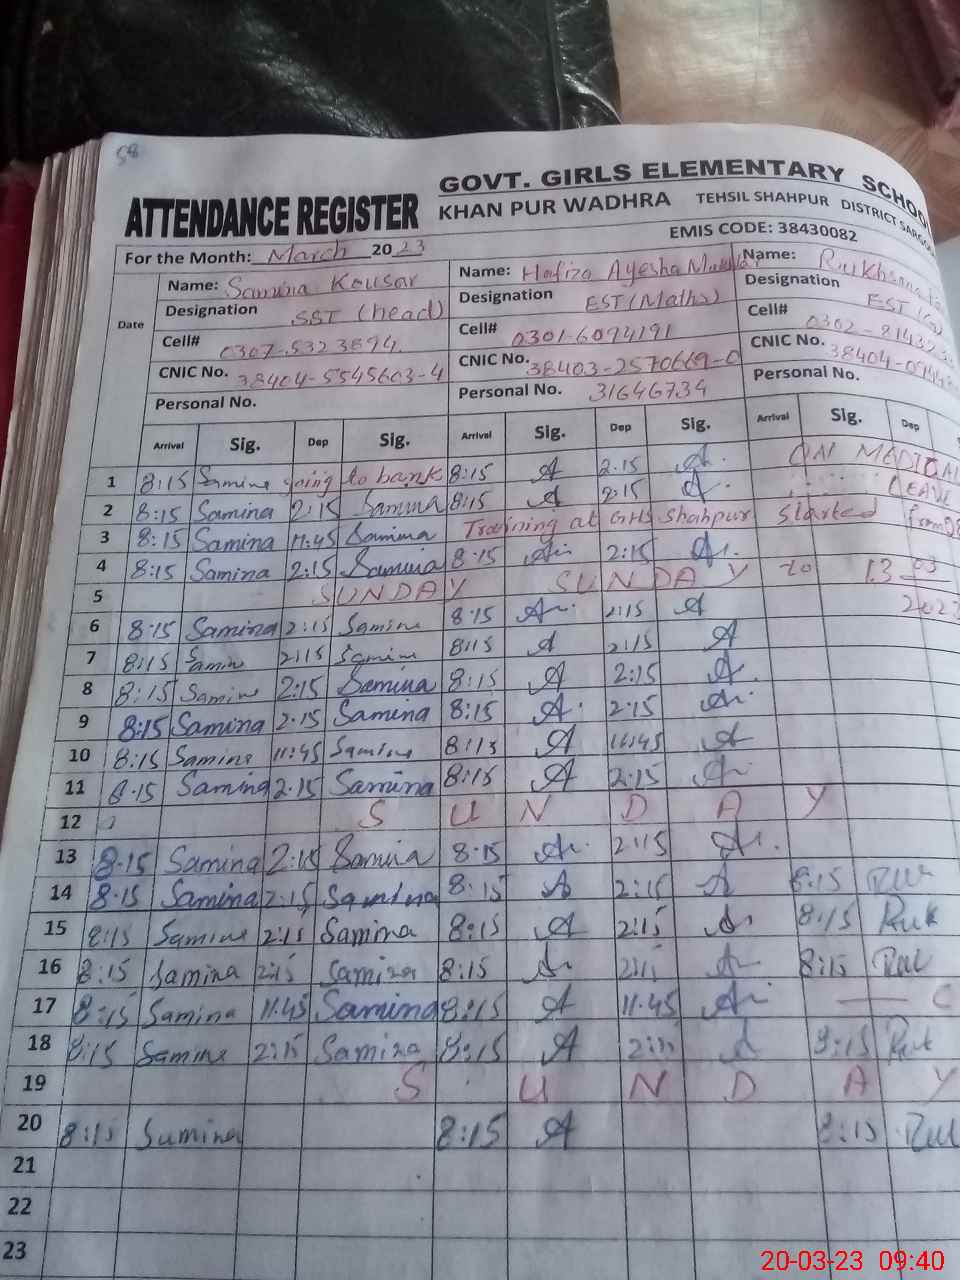 58
GOVT. GIRLS ELEMENTARY SCHOO
ATTENDANCE REGISTER
KHAN PUR WADHRA TEHSIL SHAHPUR DISTRICT SARGO
EMIS CODE: 38430082
For the Month: March 2023
Date
Name: Samina Kousar Name: Hafiza Ayesha Name:
Designation SST (head) Designation EST (Maths) Designation EST
Cell# 0307-5323894 Cell# 0301-6094191 Cell#
CNIC No. 38404-5545603-4 CNIC No. 38403-2570669-0 CNIC No.
Personal No. Personal No. 31646734 Personal No.
Arrival Sig. Dep Sig. Arrival Sig. Dep Sig. Arrival Sig. Dep
1 8:15 Samina going to bank 8:15 A 2:15 A. MEDICAL
2 8:15 Samina 2:15 Samina 8:15 A 2:15 A. LEAVE
3 8:15 Samina 11:45 Samina Training at GHS Shahpur started from
4 8:15 Samina 2:15 Samina 8:15 2:15 to 13 03
5 SUNDAY SUNDAY 2023
6 8:15 Samina 2:15 Samina 8:15 2:15 A
7 8:15 Samin 2:15 Samine 8:15 A 2:15 A
8 8:15 Samine 2:15 Samina 8:15 A 2:15 A.
9 8:15 Samina 2:15 Samina 8:15 A. 2:15
10 8:15 Samine 11:45 Samine 8:15 A 11:45 A
11 8:15 Samina 2:15 Samina 8:15 A 2:15
12 SUNDAY
13 8:15 Samina 2:15 Samina 8:15 2:15
14 8:15 Samina 2:15 Samina 8:15 A 2:15 A 8:15
15 8:15 Samine 2:15 Samina 8:15 A 2:15 8:15 Ruk
16 8:15 Samina 2:15 Samina 8:15 2:15 8:15
17 8:15 Samina 11:45 Samina 8:15 A 11:45 C
18 8:15 Samine 2:15 Samina 8:15 A 2:15 A 8:15 Ruk
19 SUNDAY
20 8:15 Samina 8:15 A 8:15
21
22
23
20-03-23 09:40